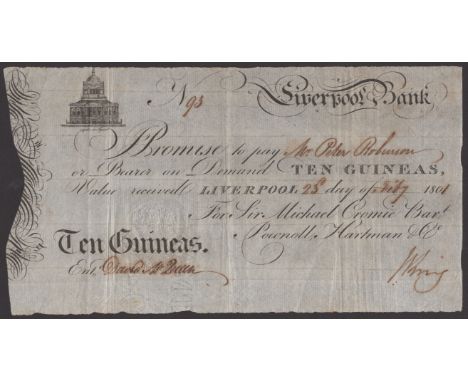 No 93 Liverpool Bank
I Promise to pay Mr Peter Robinson
or Bearer on Demand TEN GUINEAS,
Value received LIVERPOOL 28 day of 1801
For Sir Michael Cromie Bart.
Pownoll, Hartman & Co
Ten Guineas.
Ent. David